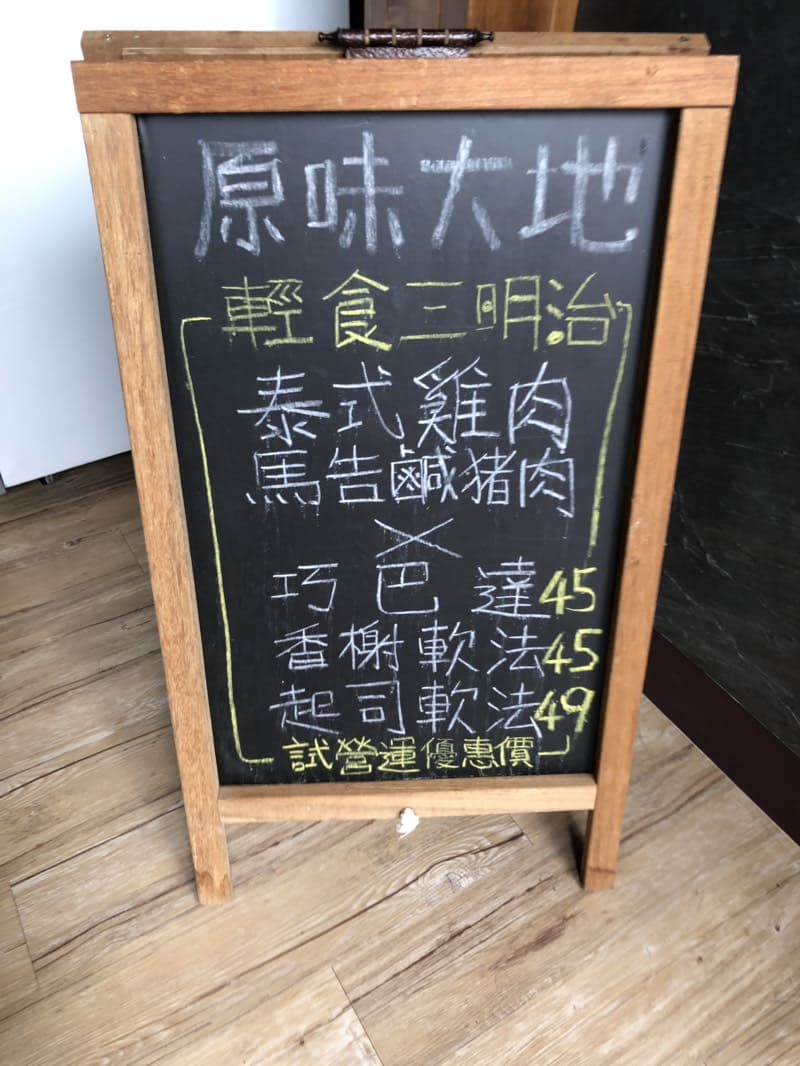 原味大地
輕食三明治
泰式雞肉
馬告鹹豬肉
×
巧巴達45
香榭軟法45
起司軟法49
試營運優惠價